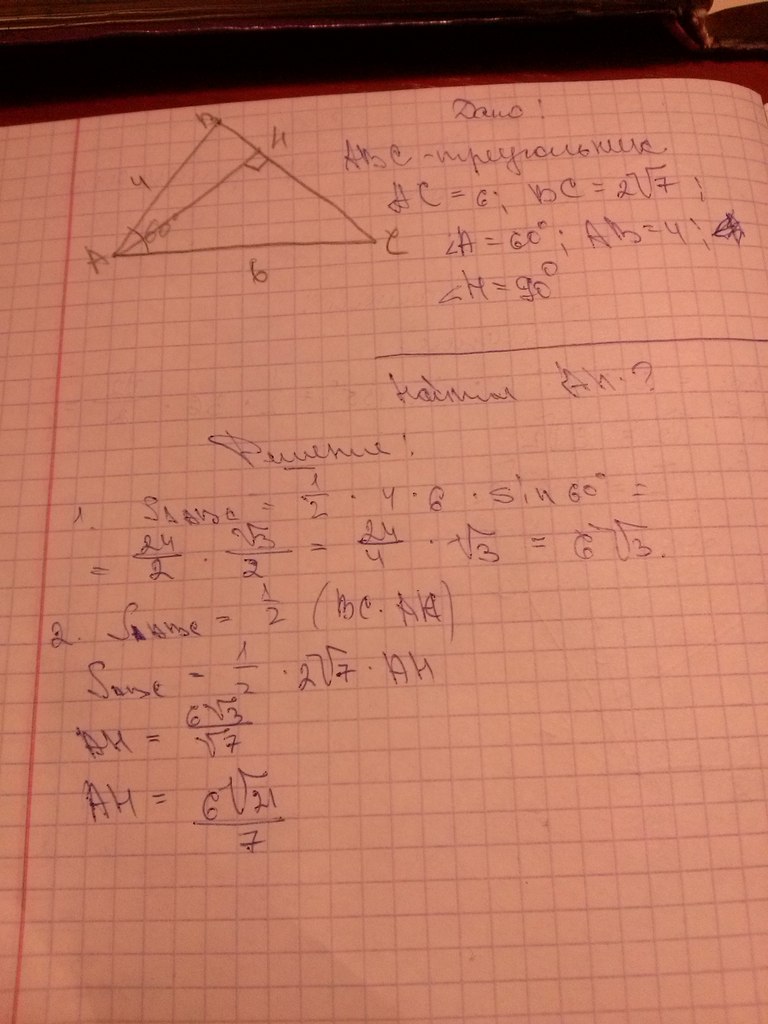 Дано!
B
H
ABC - треугольник
4
AC = 6; BC = 2√7;
60°
A
C
∠A = 60°; AB = 4;
6
∠H = 90°
Найти AH - ?
Решение!
1. S△ABC = 1/2 · 4 · 6 · sin 60° =
= 24/2 · √3/2 = 24/4 · √3 = 6√3.
2. S△ABC = 1/2 (BC · AH)
SABC = 1/2 · 2√7 · AH
AH = 6√3/√7
AH = 6√21/7